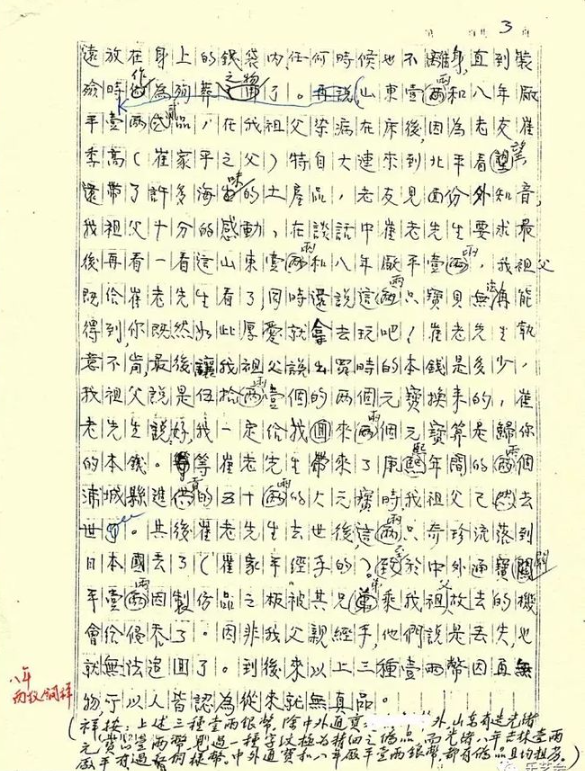 3
遠放在身上的銀袋內任何時候也不離身,直到裝
殮時作為殉葬之物了。再說山東壹兩和八年廠
平壹兩貳品,在我祖父染病在床後,因為老友崔
季高(崔家平之父)特自大連來到北平看望,
還帶了許多海味的土產品,老友見面份外知音,
我祖父十分的感動,在談話中崔老先生要求最
後再看一看這山東壹兩和八年廠平壹兩,我祖父
既給崔老先生看了,同時還說這兩只寶貝無法再能
得到,你既然如此厚愛就拿去玩吧!崔老先生執
意不肯,最後讓我祖父說出買時的本錢是多少,
我祖父說是伍拾兩壹個的兩個元寶換來的,崔
老先生說好,我一定給我回來兩個元寶算是歸你
的本錢。等崔老先生帶來了康熙年間的兩個
浦城縣進貢的五十兩的大元寶時,我祖父已然去
世了。其後崔老先生去世後,這兩只奇珍流落到
日本國去了(崔家年經手的)。至於中外通寶關
平壹兩因製份品之板被其兄弟乘我祖父故去的機
會給侵吞了。因非我父親經手,他們說是丟失,也
就無法追回了。到後來以上三種壹兩幣因再無
物可以人皆認為從來就無真品。
八年
兩枚銅樣
(祥按:上述三種壹兩銀幣,除中外通寶 外,山東省造光緒
元寶 壹兩幣